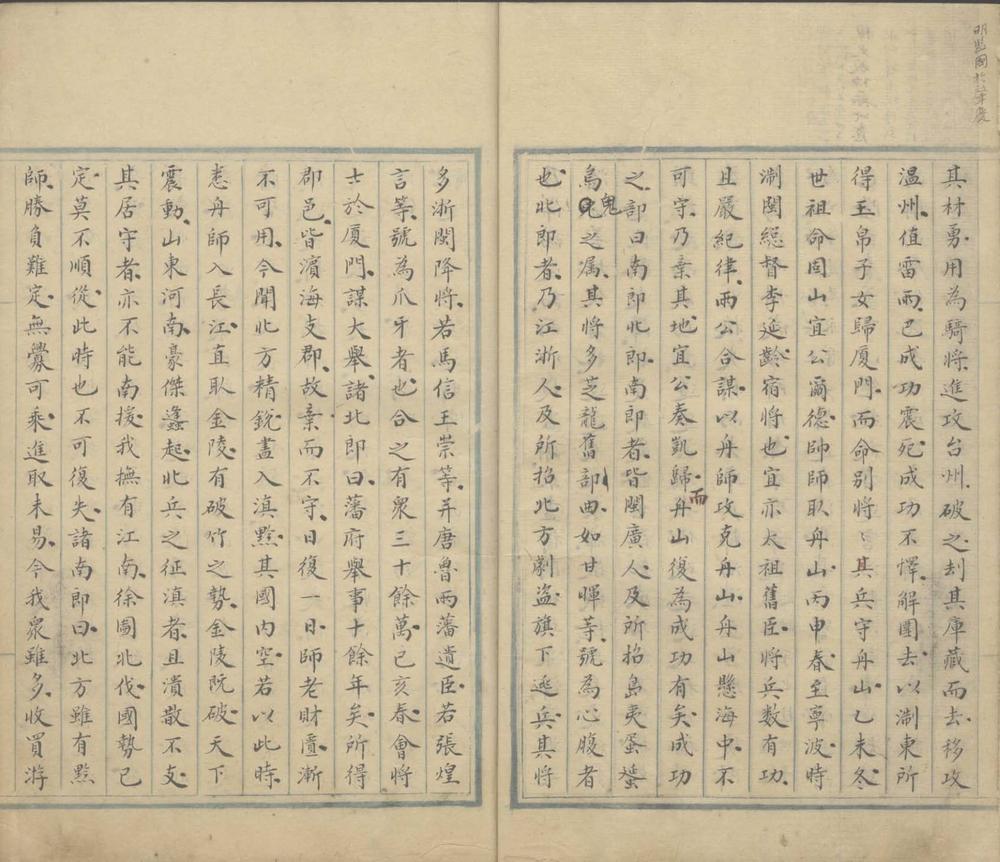 其材勇用為騎將進攻台州破之刦其庫藏而去移攻
温州值雷雨已成功震死成功不懌解圍去以淛東所
得玉帛子女歸厦門而命別將〻其兵守舟山乙未冬
世祖命固山宜公爾德帥師取舟山丙申春至寧波時
淛閩總督李延齡宿將也宜亦太祖舊臣將兵数有功
且嚴紀律兩公合謀以舟師攻克舟山舟山懸海中不
可守乃棄其地宜公奏凱歸而舟山復為成功有矣成功
之部曰南郎北郎南郎者皆閩廣人及所招島夷蛋蠻
烏鬼之属其將多芝龍舊部曲如甘暉等號為心腹者
也北郎者乃江浙人及所招北方劇盜旗下逃兵其將
多浙閩降將若馬信王崇等并唐魯兩藩遺臣若張煌
言等號為爪牙者也合之有衆三十餘萬己亥春會將
士於厦門謀大舉諸北郎曰藩府舉事十餘年矣所得
郡邑皆濵海支郡故棄而不守日復一日師老財匱漸
不可用今聞北方精銳盡入滇黔其國内空若以此時
悉舟師入長江直取金陵有破竹之勢金陵既破天下
震動山東河南豪傑蠭起北兵之征滇者且潰散不支
其居守者亦不能南援我撫有江南徐圖北伐國勢已
定莫不順從此時也不可復失諸南郎曰北方雖有黔
師勝負難定無釁可乘進取未易今我衆雖多收買游